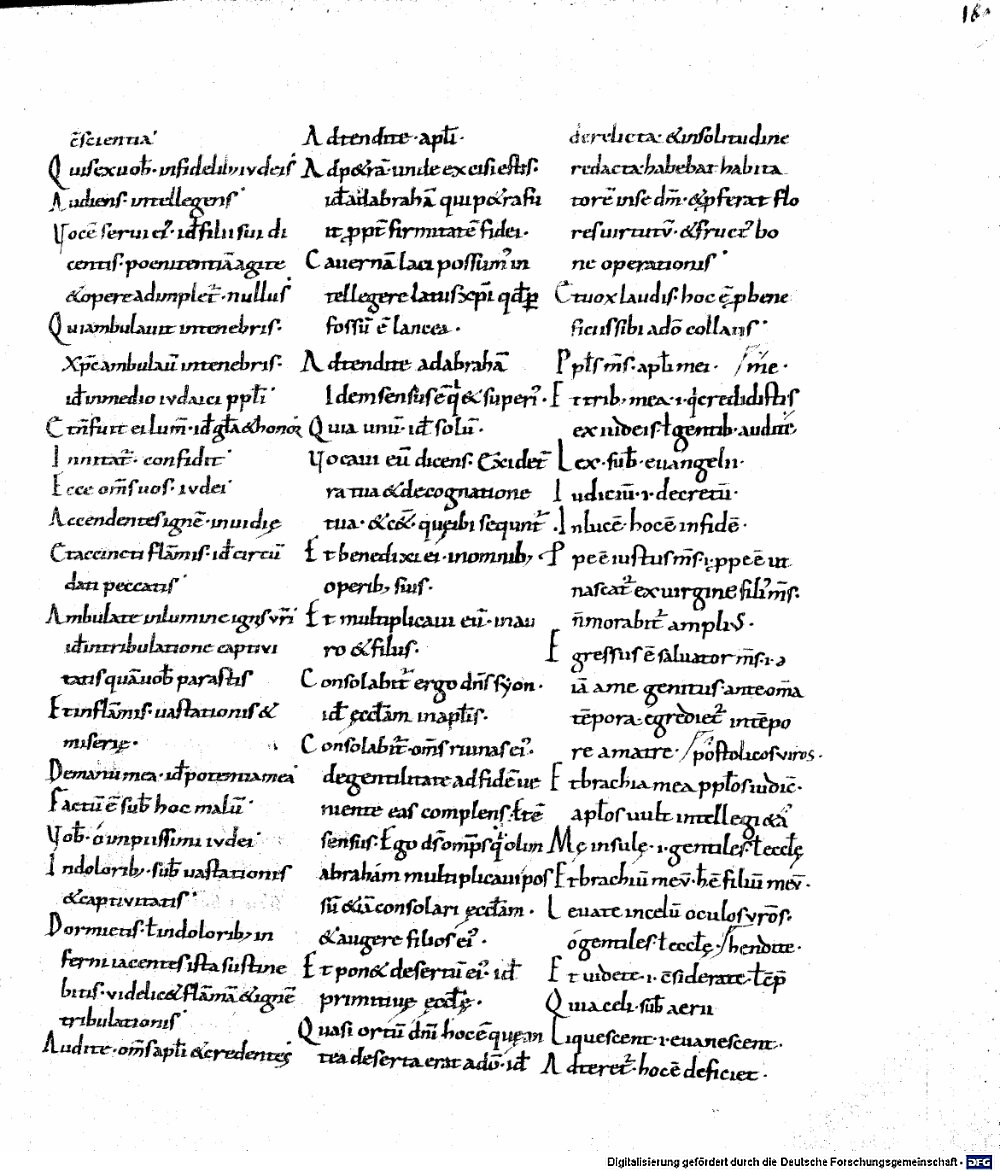 18
c̄scientia
Quis ex uob̄· infidelib; iudeis
Audiens· intellegens
Uocē serui ei᷒· id̄ filii sui di
centis· poenitentiā agite
& opere adimplet᷑· nullus
Qui ambulauit in tenebris·
xp̄c ambulauit in tenebris·
id̄ in medio iudaici pp̄li
Et n̄ fuit ei lum̄· id̄ gl̄a & honor
Innitat᷑· confidit
Ecce om̄s uos· iudei
Accendentes ignē· inuidię
Et accincti flāmis· id̄ circū
dati peccatis
Ambulate in lumine ignis vr̄i
id̄ in tribulatione captivi
tatis quā uob̄ parastis
Et in flāmis· uastationis &
miserię·
De manu mea· id̄ potentia mea
Factū ē sub̄ hoc malū
Uob̄· o impiissimi iudei
In dolorib; sub̄ uastationis
& captiuitatis
Dormietis· ł in dolorib; in
ferni iacentes ista sustine
bitis· videlic& flāmā & ignē
tribulationis
Audite· om̄s apl̄i & credentes
Adtendite· apl̄i·
Ad p&rā· unde excisi estis·
id̄ ad abrahā qui p&ra fu
it ꝓpt̄ firmitatē fidei·
Cauernā laci possum᷒ in
tellegere latus xp̄i qd̄ ꝑ
fossū ē lancea·
Adtendite ad abrahā
Idem sensus ē qi & superi᷒·
Quia unū· id̄ solū·
Uocaui eū dicens· Exi de t̄
ra tua & de cognatione
tua· & c&̄· quę ibi sequnt᷑·
Et benedixi ei· in omnib;
operib; suis·
Et multiplicaui eū· in au
ro & filiis·
Consolabit᷑ ergo dn̄s syon·
id̄ ęccl̄am in apl̄is·
Consolabit᷑· om̄s ruinas ei᷒·
de gentilitate ad fidē ue
niente eas complens· ł tē
sensus· Ego ds̄ omp̄s qi olim
abrahám multiplicaui pos
sū & iā consolari ęccl̄am·
& augere filios ei᷒·
Et pon& desertū ei᷒· id̄
primitiuę ęccl̄ę·
Quasi ortū dn̄i hoc ē quę an
tea deserta erat a do̅· id̄
derelicta· & in solitudine
redacta habebat habita
torē in se dm̄· & ꝓferat flo
res uirtutū· & fruct᷒ bo
ne operationis
Et uox laudis· hoc ē ꝓ bene
ficiis sibi a do̅ collatis
Ppl̄s m̄s· apl̄i mei· /me·
Et trib; mea· i· qi credidistis
ex iudeis ł gentib; audite
Lex· sub̄· euangelii·
Iudiciū· i· decretū·
In lucē· hoc ē in fidē·
Ppe ē iustus m̄s· i· ꝓpe ē ut
nascat᷑ ex uirgine fili᷒ m̄s·
n̄ morabit᷑ ampli᷒·
Egressus ē saluator m̄s· i·
iā a me genitus· ante om̄a
tēpora· egrediet᷑ in tēpo
re a matre· /postolicos viros·
Et brachia mea pp̄los iudic̄·
apl̄os uult intellegi & a
Mę insulę· i· gentiles· ł eccl̄ę
Et brachiū meū· h̄ ē filiū meū·
Leuate in celū oculos vr̄os·
o gentiles· ł eccl̄ę· /hendite·
Et uidete· i· c̄siderate· ł cp̄
Quia celi· sub̄ aerii
Liquescent· i· euanescent·
Adteret᷑· hoc ē deficiet·
Digitalisierung gefördert durch die Deutsche Forschungsgemeinschaft - DFG